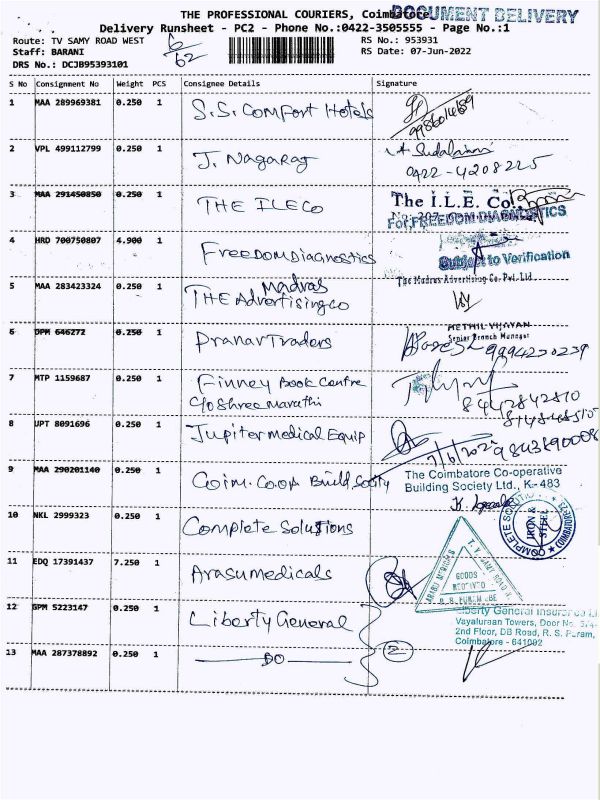 THE PROFESSIONAL COURIERS, Coimbatore
DOCUMENT DELIVERY
Delivery Runsheet - PC2 - Phone No.:0422-3505555 - Page No.:1
Route: TV SAMY ROAD WEST
6/62
RS No.: 953931
Staff: BARANI
RS Date: 07-Jun-2022
DRS No.: DCJB95393101
S No Consignment No Weight PCS Consignee Details Signature
1 MAA 289969381 0.250 1 S.S. Comfort Hotels
2 VPL 499112799 0.250 1 J. Nagaraj
0422-4208225
3 MAA 291450850 0.250 1 THE ILECo
The I.L.E. Co.
For FREEDOM DIAGNOSTICS
4 HRD 700750807 4.900 1 Freedom Diagnostics
Subject to Verification
5 MAA 283423324 0.250 1 THE Madras Advertising co
The Madras Advertising Co. Pvt. Ltd
METHIL VIJAYAN
Senior Branch Manager
6 DPM 646272 0.250 1 Pranav Traders
9994220239
7 MTP 1159687 0.250 1 Finney Book Centre
C/o Shree Marathi
8442842810
8 UPT 8091696 0.250 1 Jupiter medical Equip
7/6/2022
9843890008
9 MAA 290201140 0.250 1 Coim. Co.op Build Socity
The Coimbatore Co-operative
Building Society Ltd., K- 483
10 NKL 2999323 0.250 1 Complete Solutions
COMPLETE SOLUTIONS
IRON & STEEL
COIMBATORE
11 EDQ 17391437 7.250 1 Arasu medicals
GOODS
RECEIVED
12 GPM 5223147 0.250 1 Liberty General
Liberty General Insurance
Vayaluraan Towers, Door No.
2nd Floor, DB Road, R. S. Puram,
Coimbatore - 641002
13 MAA 287378892 0.250 1 DO
2